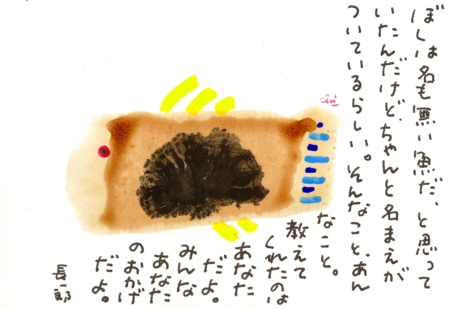 ぼくは名も無い魚だ、と思って
いたんだけど、ちゃんと名まえが
ついているらしい。そんなこと、あん
なこと。
教えて
くれたのは
あなた
だよ。
みんな
あなた
のおかげ
だよ。
長一郎